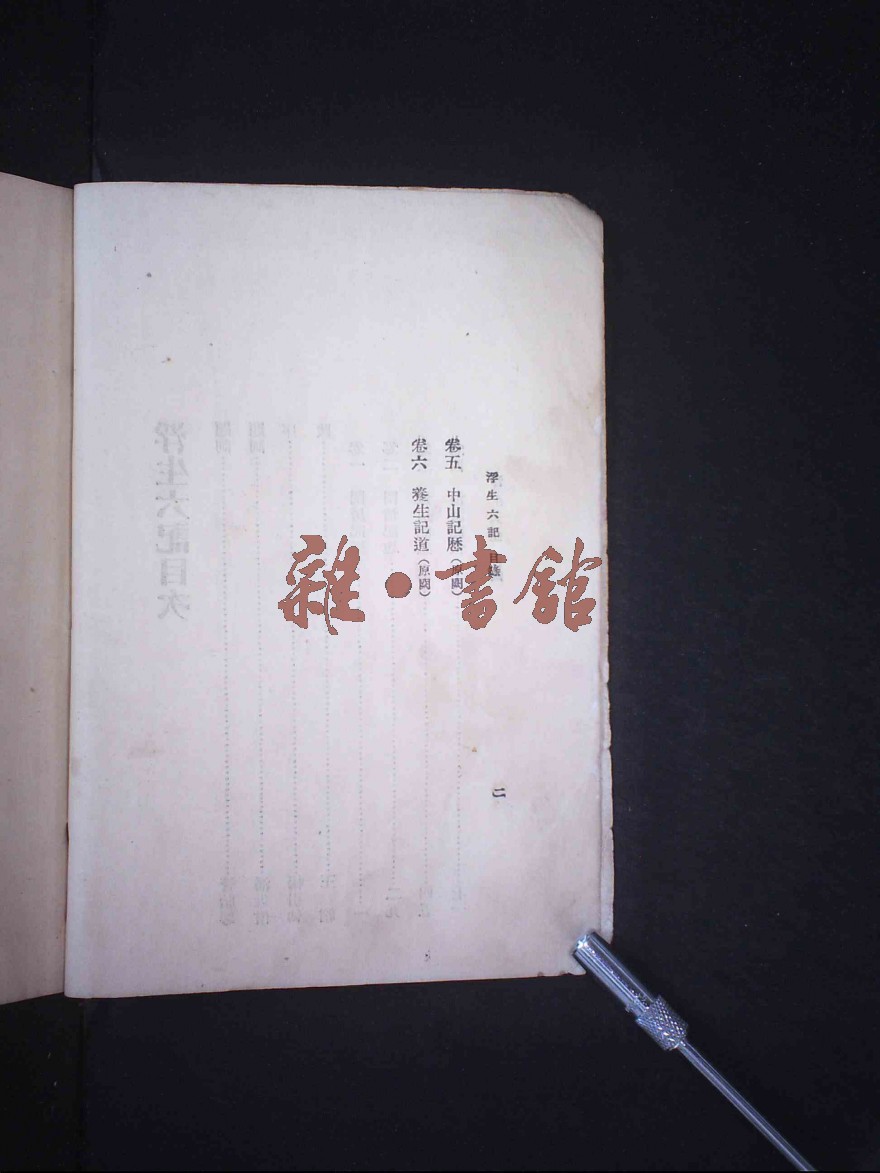 浮生六記 目錄
二
卷五 中山記歷（原闕）
卷六 養生記道（原闕）
雜·書館